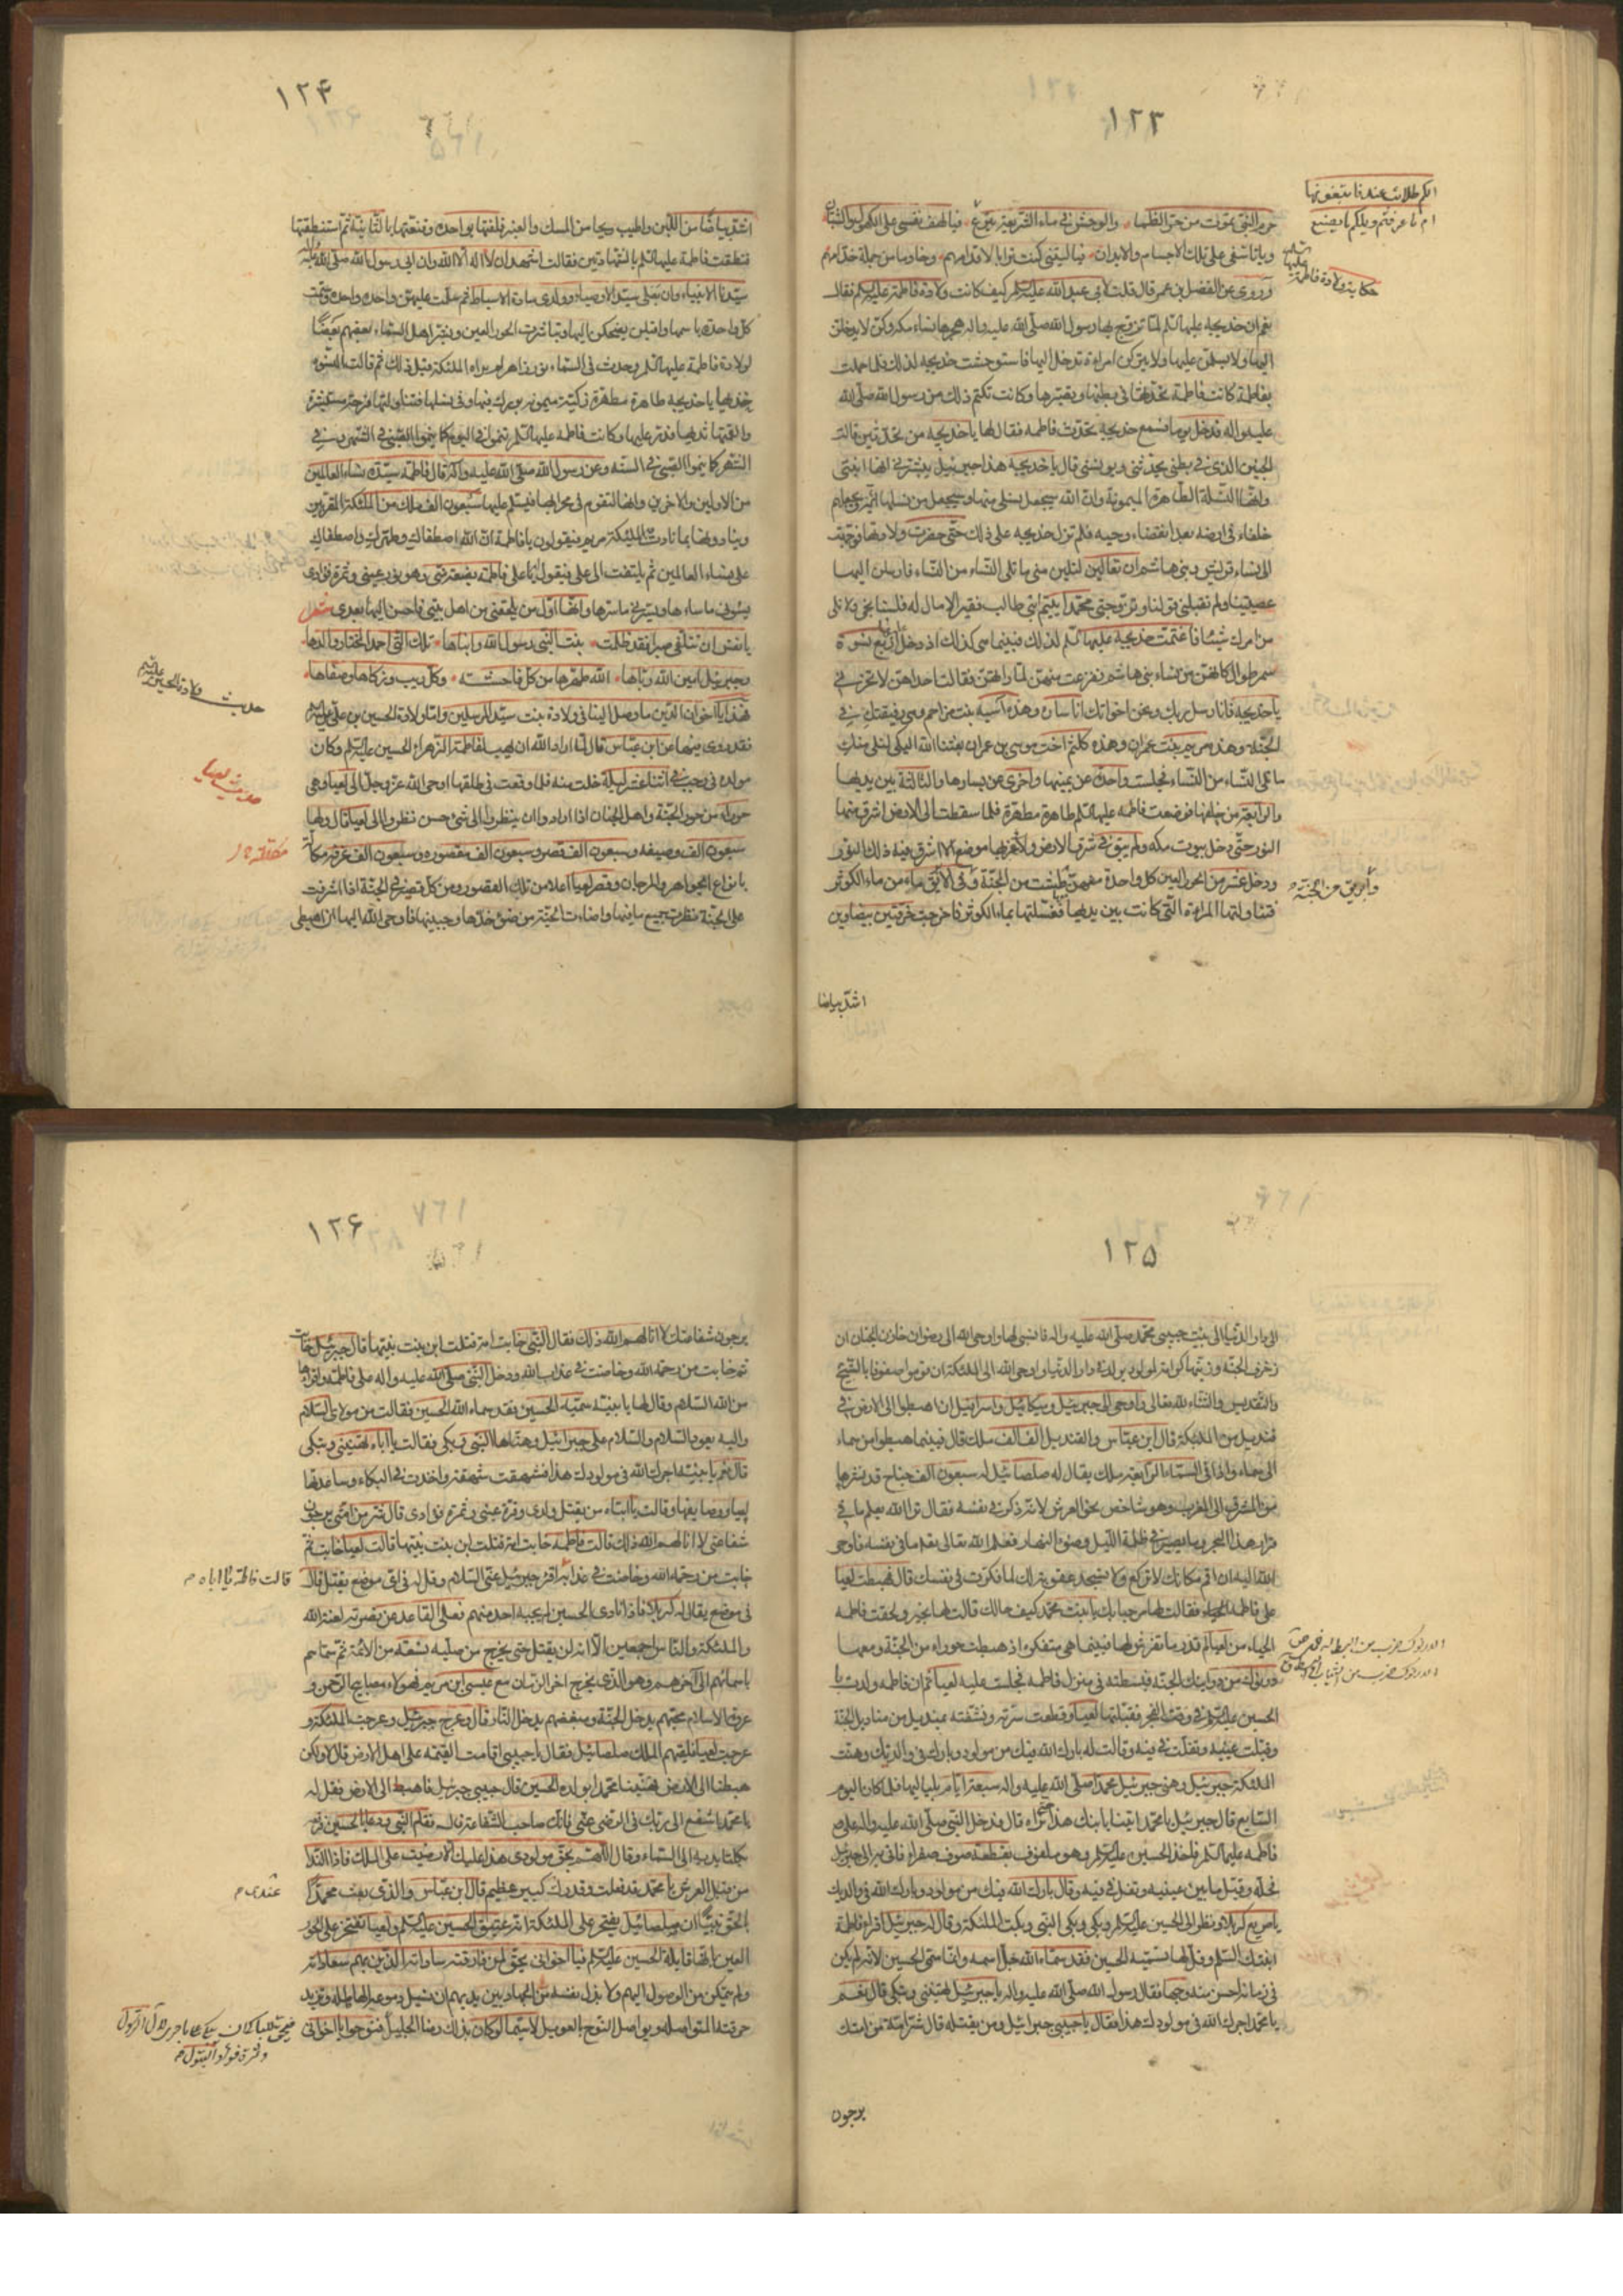 ١٢٣
حرم النبي يموت من حر الظما والوحش في ماء الشريعة فيا لهف نفسي على الكهول والشبان
ويا تأسفي على تلك الاجسام والابدان فيا ليتني كنت ترابا لاقدامهم وخادما من جملة خدامهم
وروي عن المفضل بن عمر قال قلت لابي عبد الله عليه السلم كيف كانت ولادة فاطمة عليها السلم فقال
نعم ان خديجه عليها السلم لما تزوج بها رسول الله صلى الله عليه واله هجرها نساء مكه وكن لا يدخلن
اليها ولا يسلمن عليها ولا يتركن امراة تدخل اليها فاستوحشت خديجه لذلك فلما حملت
بفاطمة كانت فاطمة تحدثها في بطنها وتصبرها وكانت تكتم ذلك من رسول الله صلى الله
عليه واله فدخل يوما فسمع خديجه تحدث فاطمه فقال لها يا خديجه من تحدثين قالت
الجنين الذي في بطني يحدثني ويونسني قال يا خديجه هذا جبرئيل يبشرني انها انثى
وانها النسلة الطاهرة الميمونة وان الله سيجعل نسلي منها وسيجعل من نسلها ائمة ويجعلهم
خلفاء في ارضه بعد انقضاء وحيه فلم تزل خديجه على ذلك حتى حضرت ولادتها فوجهت
الى نساء قريش وبني هاشم ان تعالين لتلين مني ما تلى النساء من النساء فارسلن اليها
عصيتينا ولم تقبلي قولنا وتزوجتي محمدا يتيم ابي طالب فقير لا مال له فلسنا نجي ولا نلى
من امرك شيئا فاغتمت خديجه عليها السلم لذلك فبينما هي كذلك اذ دخل اربع نسوة
سمر طوال كانهن من نساء بني هاشم ففزعت منهن لما راتهن فقالت احداهن لا تحزني
يا خديجه فانا رسل ربك ونحن اخواتك انا ساره وهذه آسيه بنت مزاحم وهي رفيقتك في
الجنة وهذه مريم بنت عمران وهذه كلثم اخت موسى بن عمران بعثنا الله اليك لنلى منك
ما تلى النساء من النساء فجلست واحدة عن يمينها واخرى عن يسارها والثالثة بين يديها
والرابعة من خلفها فوضعت فاطمه عليها السلم طاهرة مطهرة فلما سقطت الى الارض اشرق منها
النور حتى دخل بيوت مكه ولم يبق في شرق الارض ولا غربها موضع الا اشرق فيه ذلك النور
ودخل عشر من الحور العين كل واحدة معهن طشت من الجنة وفي الابريق ماء من ماء الكوثر
فتناولتها المراة التي كانت بين يديها فغسلتها بماء الكوثر فاخرجت خرقتين بيضاوين
اشد بياضا
حكاية ولادة فاطمة عليها
وابريق من الجنة
١٢۴
اشد بياضا من اللبن واطيب ريحا من المسك والعنبر فلفتها بواحدة وقنعتها بالثانية ثم استنطقتها
فنطقت فاطمة عليها السلم بالشهادتين فقالت اشهد ان لا اله الا الله وان ابي رسول الله صلى الله عليه واله
سيد الانبياء وان بعلي سيد الاوصياء وولدي سادة الاسباط ثم سلمت عليهن واحدة واحدة وسمت
كل واحدة باسمها واقبلن يضحكون اليها وتباشرت الحور العين وبشر اهل السماء بعضهم بعضا
لولادة فاطمة عليها السلم وحدث في السماء نور زاهر لم يراه الملئكة قبل ذلك ثم قالت النسوة
خذيها يا خديجه طاهرة مطهرة زكية ميمونة بورك فيها وفي نسلها فتناولتها فرحة مستبشرة
والقمتها ثديها فدر عليها وكانت فاطمه عليها السلم تنمو في اليوم كما ينمو الصبي في الشهر وفي
الشهر كما ينمو الصبي في السنه وعن رسول الله صلى الله عليه واله قال فاطمة سيدة نساء العالمين
من الاولين والاخرين وانها لتقوم في محرابها فيسلم عليها سبعون الف ملك من الملئكة المقربين
وينادونها بما نادت الملئكة مريم فيقولون يا فاطمة ان الله اصطفاك وطهرك واصطفاك
على نساء العالمين ثم يلتفت الى علي فيقول يا علي فاطمة بضعة مني وهو نور عيني وثمرة فوادي
يسوءني ما ساءها ويسرني ما سرها وانها اول من يلحقني من اهل بيتي فاحسن اليها بعدي شعر
يا نفس ان تتلفي صبرا فقد ظلمت بنت النبي رسول الله وابناها تلك التي احمد المختار والدها
وجبرئيل امين الله رباها الله طهرها من كل فاحشة وكل ريب وزكاها وصفاها
فهذا يا اخوان الدين ما وصل الينا في ولادة بنت سيد المرسلين واما ولادة الحسين بن علي عليه السلم
فقد روي منها عن ابن عباس قال لما اراد الله ان يهب لفاطمة الزهراء الحسين عليه السلم وكان
مولده في رجب في اثنا عشر ليلة خلت منه فلما وقعت في طلقها اوحى الله عز وجل الى لعيا وهي
حوراء من حور الجنة واهل الجنان اذا ارادوا ان ينظروا الى شئ حسن نظروا الى لعيا قال ولها
سبعون الف وصيفه وسبعون الف قصر وسبعون الف مقصوره وسبعون الف غرفة مكللة
بانواع الجواهر والمرجان وقصر لعيا اعلا من تلك القصور ومن كل قصر في الجنة اذا اشرفت
على الجنة نظرت جميع ما فيها واضاءت الجنة من ضوء خدها وجبينها فاوحى الله اليها ان اهبطي
حديث ولادة الحسين عليه السلم
حديث لعيا
١٢۵
الى دار الدنيا الى بنت حبيبي محمد صلى الله عليه واله فانسي لها واوحى الله الى رضوان خازن الجنان ان
زخرف الجنة وزينها كرامة لمولود يولد في دار الدنيا واوحى الله الى الملئكة ان قوموا صفوفا بالتسبيح
والتقديس والثناء لله تعالى واوحى الى جبرئيل وميكائيل واسرافيل ان اهبطوا الى الارض في
قنديل من الملئكة قال ابن عباس والقنديل الف الف ملك قال فبينما هبطوا من سماء
الى سماء واذا في السماء الرابعة ملك يقال له صلصائيل له سبعون الف جناح قد نشرها
من المشرق الى المغرب وهو شاخص نحو العرش لانه ذكر في نفسه فقال ترا الله يعلم ما في
قرار هذا البحر وما يسير في ظلمة الليل وضوء النهار فعلم الله تعالى بقدر ما في نفسه فاوحى
الله اليه ان اقم مكانك لا تركع ولا تسجد عقوبة لك لما فكرت في نفسك قال فهبطت لعيا
على فاطمة فقالت لها مرحبا بك يا بنت محمد كيف حالك قالت لها بخير ولحقت فاطمه
الحياء من لعيا لم تدر ما تفرش لها فبينما هي متفكره اذ هبطت حوراء من الجنة ومعها
درنوك من درانيك الجنه فبسطته في منزل فاطمه فجلست عليه لعيا ثم ان فاطمه ولدت
الحسين عليه السلم في وقت الفجر فقبلتها لعيا وقطعت سرته ونشفته بمنديل من مناديل الجنة
وقبلت عينيه وتفلت في فيه وقالت له بارك الله فيك من مولود وبارك في والديك وهنت
الملئكة جبرئيل وهنى جبرئيل محمدا صلى الله عليه واله سبعة ايام بلياليها فلما كان اليوم
السابع قال جبرئيل يا محمد ايتنا بابنك هذا نراه قال فدخل النبي صلى الله عليه واله على
فاطمه عليها السلم فاخذ الحسين عليه السلم وهو ملفوف بقطعة صوف صفراء فاتى به الى جبرئيل
فحله وقبل ما بين عينيه وتفل في فيه وقال بارك الله فيك من مولود وبارك الله في والديك
يا صريع كربلا ونظر الى الحسين عليه السلم وبكى وبكى النبي وبكت الملئكة وقال له جبرئيل اقرا فاطمة
ابنتك السلم وقل لها تسميه الحسين فقد سماه الله جل اسمه وانما سمي الحسين لانه لم يكن
في زمانه احسن منه وجها فقال رسول الله صلى الله عليه واله يا جبرئيل تهنيني وتبكي قال نعم
يا محمد اجرك الله في مولودك هذا فقال يا حبيبي جبرائيل ومن يقتله قال شر امة من امتك
يرجون
١٢۶
يرجون شفاعتك لا انالهم الله ذلك فقال النبي خابت امة قتلت ابن بنت نبيها قال جبرئيل خابت
ثم خابت من رحمة الله وخاضت في عذاب الله ودخل النبي صلى الله عليه واله على فاطمة واقراها
من الله السلام وقال لها يا بنيه سميه الحسين فقد سماه الله الحسين فقالت من مولاي السلام
واليه يعود السلام والسلام على جبرائيل وهناها النبي وبكى فقالت يا اباه تهنيني وتبكي
قال نعم يا بنيه اجرك الله في مولودك هذا فشهقت شهقة واخذت في البكاء وساعدتها
لعيا ووصايفها وقالت يا ابتاه من يقتل ولدي وقرة عيني وثمرة فوادي قال شر من امتي يرجون
شفاعتي لا انالهم الله ذلك قالت فاطمه خابت امة قتلت ابن بنت نبيها قالت لعيا خابت ثم
خابت من رحمة الله وخاضت في عذابه اقر جبرئيل عني السلام وقل له في اي موضع يقتل قال
في موضع يقال له كربلا فاذا نادى الحسين لم يجبه احد منهم فعلى القاعد عن نصرته لعنة الله
والملئكة والناس اجمعين الا انه لن يقتل حتى يخرج من صلبه تسعة من الائمة ثم سماهم
باسمائهم الى آخرهم وهو الذي يخرج اخر الزمان مع عيسى ابن مريم فهولاء مصابيح الرحمن و
عروة الاسلام محبهم يدخل الجنة ومبغضهم يدخل النار قال وعرج جبرئيل وعرجت الملئكة و
عرجت لعيا فلقيهم الملك صلصائيل فقال يا حبيبي اقامت القيمه على اهل الارض قال لا ولكن
هبطنا الى الارض فهنينا محمدا بولده الحسين قال حبيبي جبرئيل فاهبط الى الارض فقل له
يا محمد اشفع الى ربك في الرضى عني فانك صاحب الشفاعة قال فقام النبي ودعا بالحسين فرفعه
بكلتا يديه الى السماء وقال اللهم بحق مولودي هذا عليك الا رضيت على الملك فاذا النداء
من قبل العرش يا محمد قد فعلت وقدرك كبير عظيم قال ابن عباس والذي بعث محمدا
بالحق نبيا ان صلصائيل يفتخر على الملئكة انه عتيق الحسين عليه السلم ولعيا تفتخر على الحور
العين بانها قابلة الحسين عليه السلم فيا اخواني بحق لمن فارقته ساداته الذين بهم سعاداته
ولم يتمكن من الوصول اليهم ولا بذل نفسه من الجهاد بين يديهم ان تسيل دموعه الهاطله وتزيد
حرقته المتواصله ويواصل النوح بالعويل لا سيما لو كان بذلك رضا الجليل فنوحوا يا اخواني
قالت فاطمة يا اباه
عندي